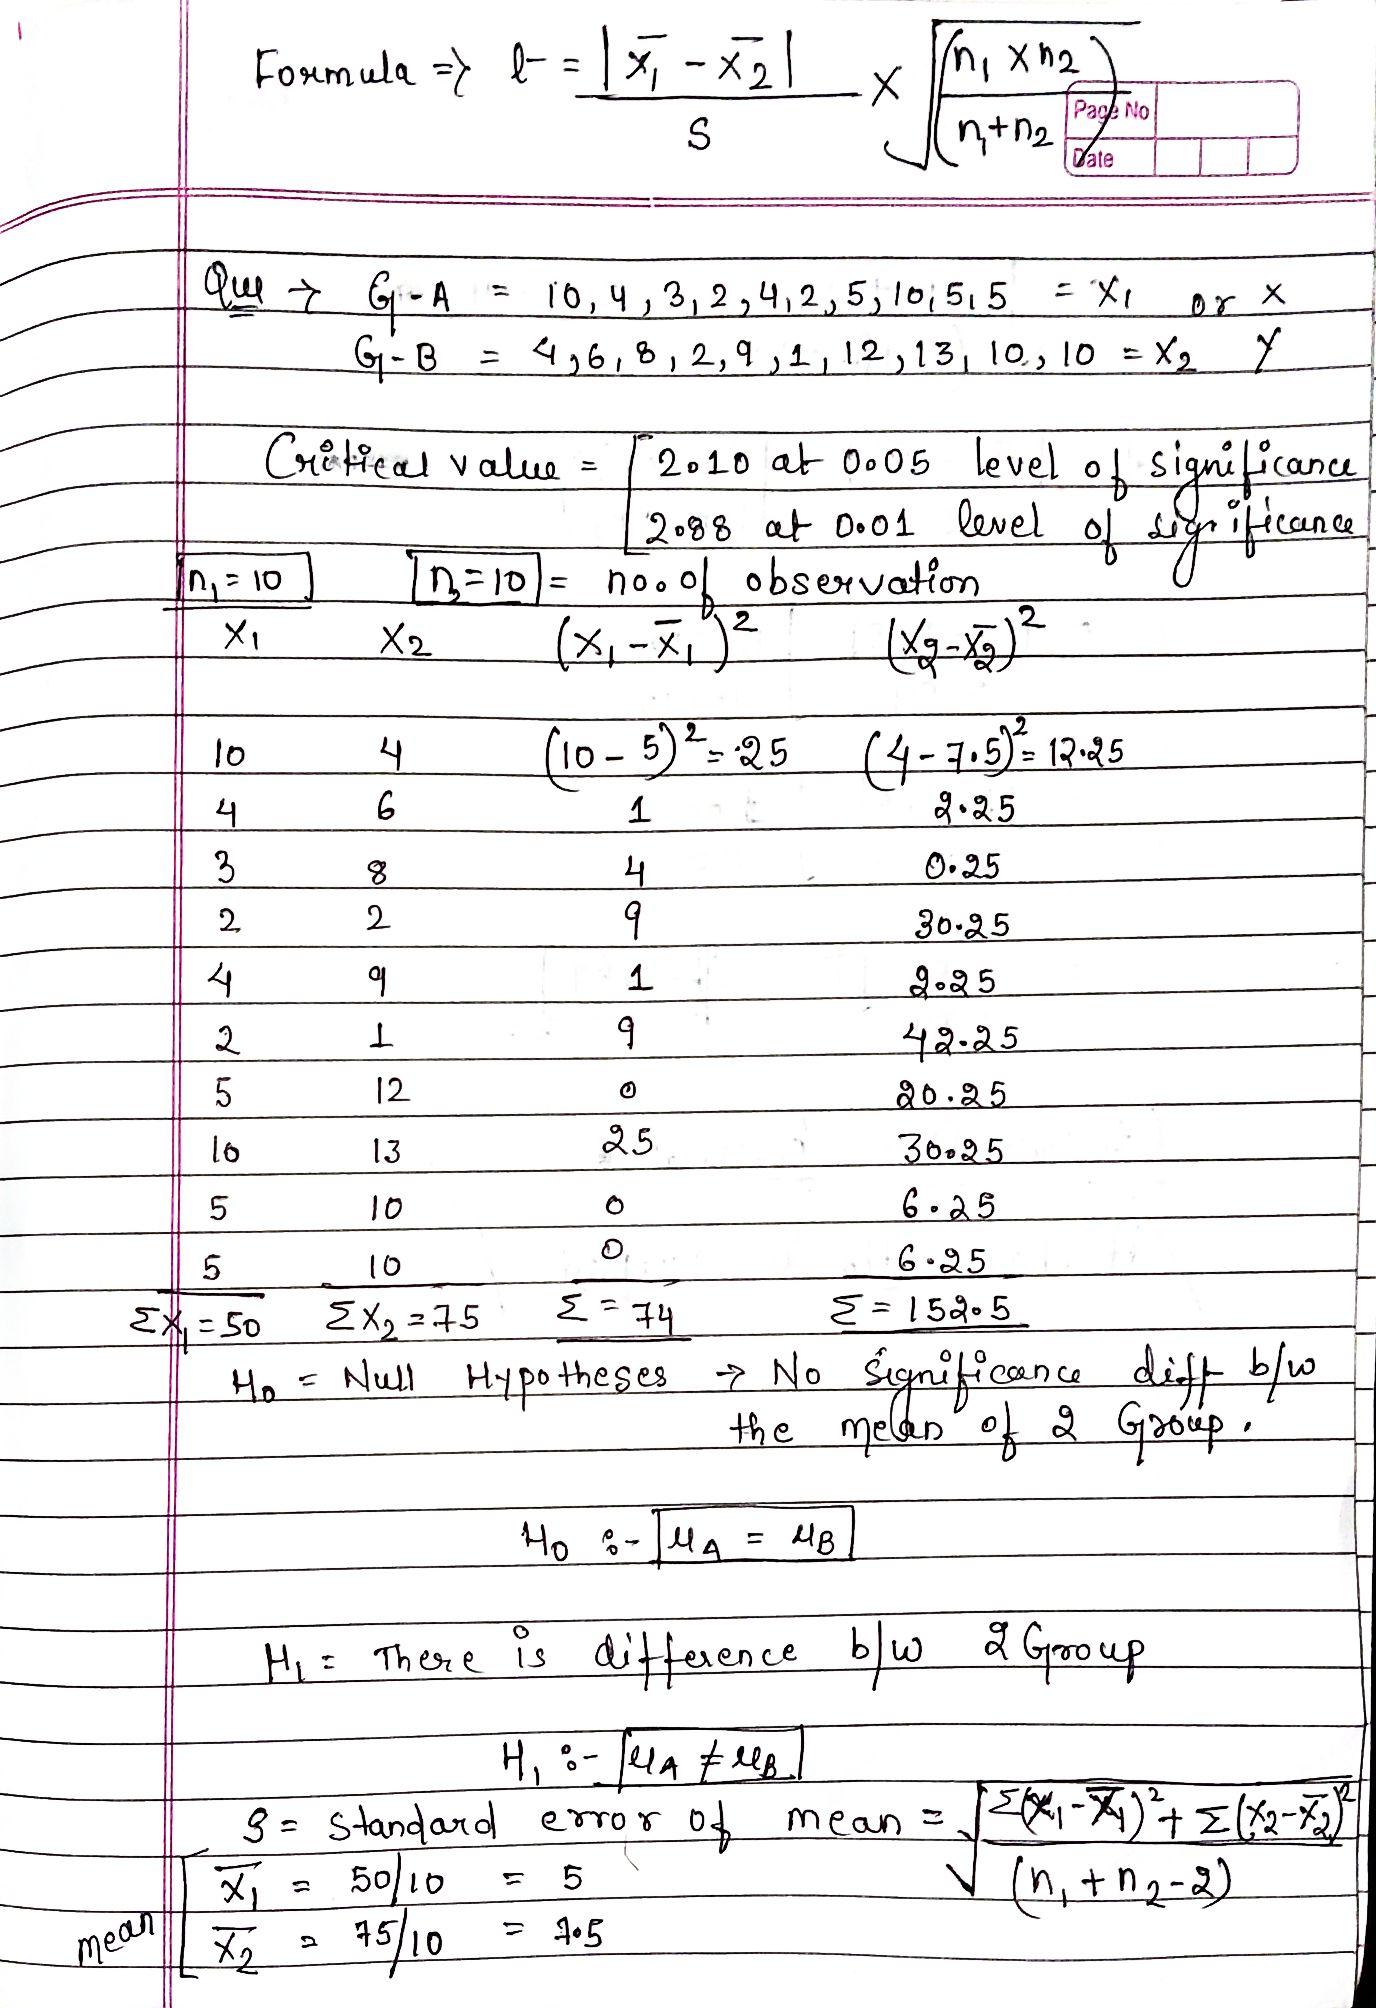 Formula => t = |x̄₁ - x̄₂| / S × √((n₁ × n₂) / (n₁ + n₂))
Page No
Date
Que → G-A = 10, 4, 3, 2, 4, 2, 5, 10, 5, 5 = X₁ or X
G-B = 4, 6, 8, 2, 9, 1, 12, 13, 10, 10 = X₂ Y
Critical value = [ 2.10 at 0.05 level of significance
2.88 at 0.01 level of significance
n₁ = 10 n₂ = 10 = no. of observation
X₁ X₂ (X₁ - X̄₁)² (X₂ - X̄₂)²
10 4 (10 - 5)² = 25 (4 - 7.5)² = 12.25
4 6 1 2.25
3 8 4 0.25
2 2 9 30.25
4 9 1 2.25
2 1 9 42.25
5 12 0 20.25
10 13 25 30.25
5 10 0 6.25
5 10 0 6.25
ΣX₁ = 50 ΣX₂ = 75 Σ = 74 Σ = 152.5
H₀ = Null Hypotheses → No Significance diff b/w
the mean of 2 Group.
H₀ :- μA = μB
H₁ = There is difference b/w 2 Group
H₁ :- μA ≠ μB
S = standard error of mean = √((Σ(X₁ - X̄₁)² + Σ(X₂ - X̄₂)²) / (n₁ + n₂ - 2))
mean [ X̄₁ = 50/10 = 5
X̄₂ = 75/10 = 7.5